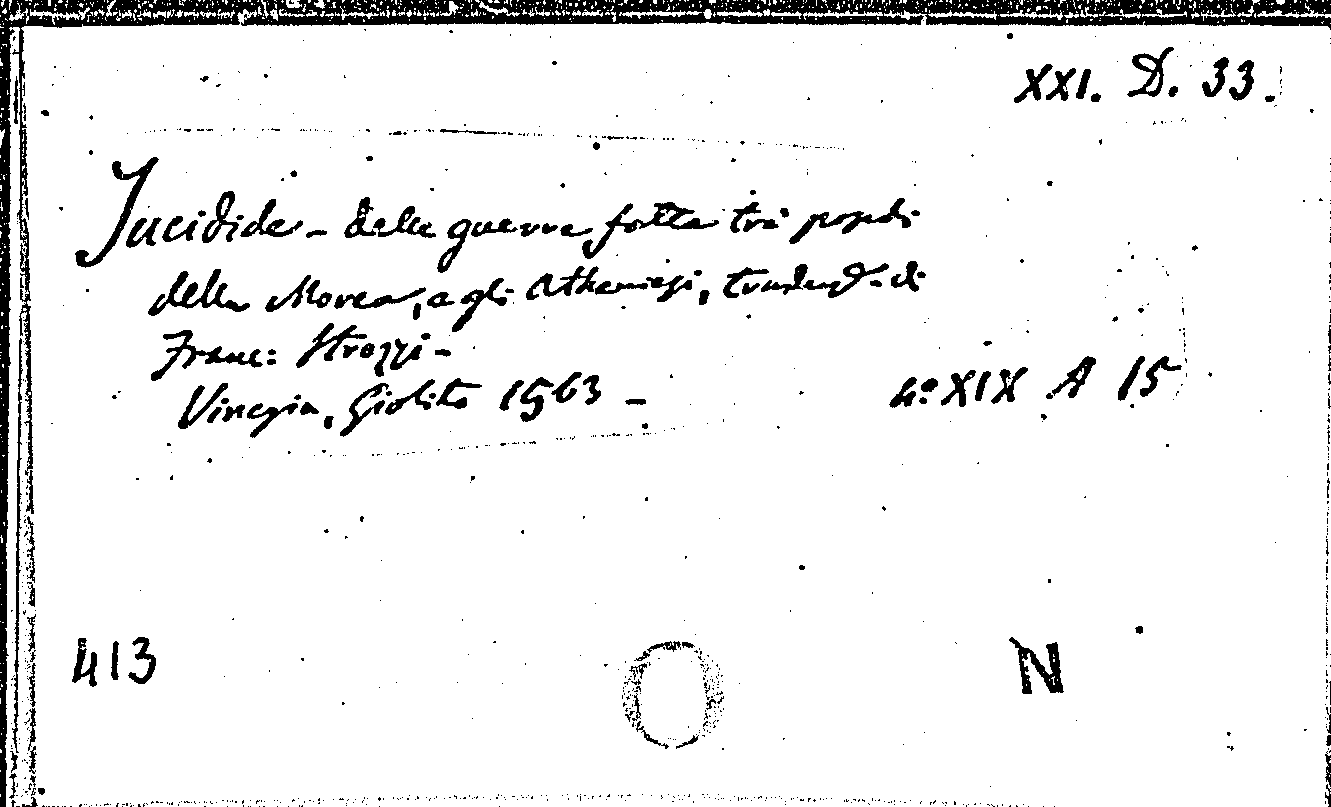 XXI. D. 33.
Tucidide - delle guerre fatte tra' popoli
della Morea, e gli Atheniesi, traduz. di
Franc: Strozzi -
Vinegia, Giolito 1563 - 4º XIX A 15
413
N